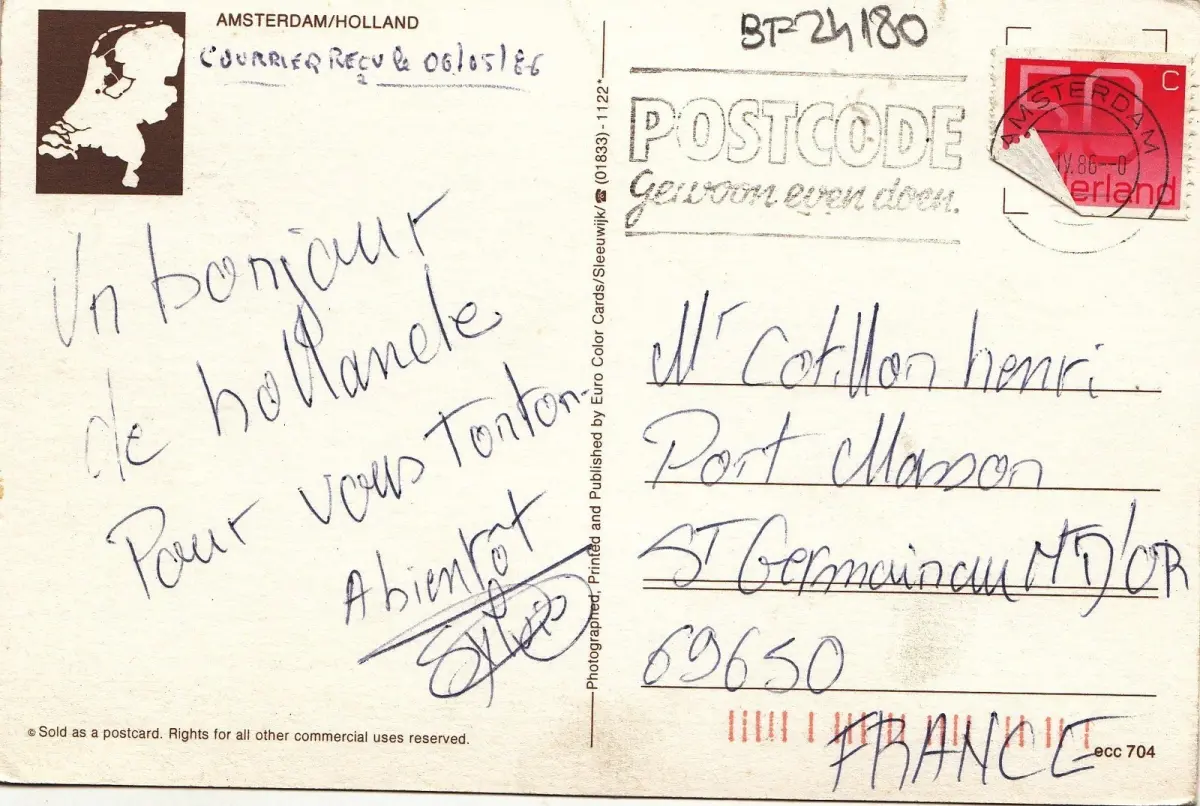 AMSTERDAM/HOLLAND
COURRIER REÇU le 06/05/86
Un bonjour
de hollande
Pour vous Tonton-
A bientôt
Sylvie
© Sold as a postcard. Rights for all other commercial uses reserved.
Photographed, Printed and Published by Euro Color Cards/Sleeuwijk/☎ (01833) - 1122*
BP-24180
POSTCODE
Gewoon even doen.
50
C
AMSTERDAM
IV.86--0
erland
Mr Cotillon henri
Port Masson
ST Germain au MT D'OR
69650
FRANCE
ecc 704